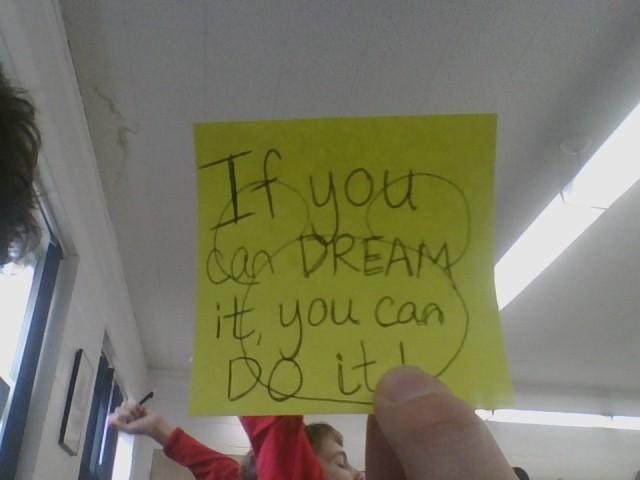 If you
can DREAM
it, you can
DO it!